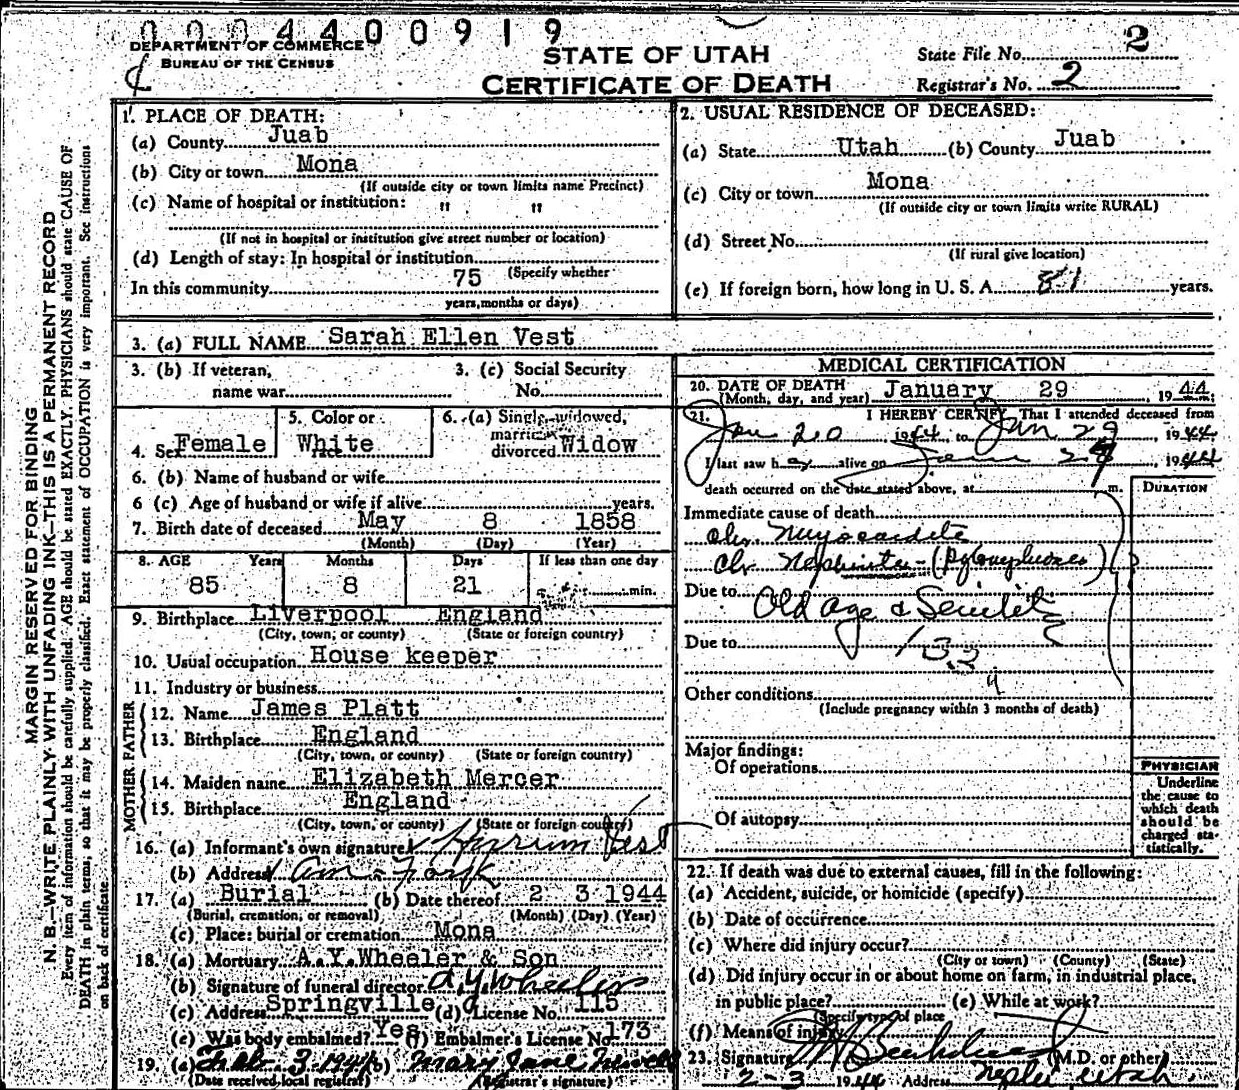 0004400919
DEPARTMENT OF COMMERCE
BUREAU OF THE CENSUS
STATE OF UTAH
CERTIFICATE OF DEATH
State File No. 2
Registrar's No. 2
MARGIN RESERVED FOR BINDING
N. B.—WRITE PLAINLY WITH UNFADING INK—THIS IS A PERMANENT RECORD
Every item of information should be carefully supplied. AGE should be stated EXACTLY. PHYSICIANS should state CAUSE OF
DEATH in plain terms, so that it may be properly classified. Exact statement of OCCUPATION is very important. See instructions
on back of certificate.
1. PLACE OF DEATH:
(a) County Juab
(b) City or town Mona
(If outside city or town limits name Precinct)
(c) Name of hospital or institution: " "
(If not in hospital or institution give street number or location)
(d) Length of stay: In hospital or institution
(Specify whether
In this community 75
years, months or days)
2. USUAL RESIDENCE OF DECEASED:
(a) State Utah (b) County Juab
(c) City or town Mona
(If outside city or town limits write RURAL)
(d) Street No.
(If rural give location)
(e) If foreign born, how long in U. S. A. 81 years.
3. (a) FULL NAME Sarah Ellen Vest
3. (b) If veteran,
name war
3. (c) Social Security
No.
4. Sex Female
5. Color or
race White
6. (a) Single, widowed,
married
divorced Widow
6. (b) Name of husband or wife
6 (c) Age of husband or wife if alive years.
7. Birth date of deceased May 8 1858
(Month) (Day) (Year)
8. AGE Years Months Days If less than one day
85 8 21 min.
9. Birthplace Liverpool England
(City, town, or county) (State or foreign country)
10. Usual occupation House keeper
11. Industry or business
FATHER
12. Name James Platt
13. Birthplace England
(City, town, or county) (State or foreign country)
MOTHER
14. Maiden name Elizabeth Mercer
15. Birthplace England
(City, town, or county) (State or foreign country)
16. (a) Informant's own signature Hyrum Vest
(b) Address Am. Fork
17. (a) Burial (b) Date thereof 2 3 1944
(Burial, cremation, or removal) (Month) (Day) (Year)
(c) Place: burial or cremation Mona
18. (a) Mortuary A.Y.Wheeler & Son
(b) Signature of funeral director A.Y.Wheeler
(c) Address Springville (d) License No. 115
(e) Was body embalmed? Yes (f) Embalmer's License No. 173
19. (a) Feb. 3-1944 (b) Mary Jane
(Date received local registrar) (Registrar's signature)
MEDICAL CERTIFICATION
20. DATE OF DEATH January 29 1944
(Month, day, and year)
21. I HEREBY CERTIFY, That I attended deceased from
Jan 20, 1944, to Jan 29, 1944
I last saw her alive on Jan 29, 1944
death occurred on the date stated above, at m.
DURATION
Immediate cause of death
Chr. Myocardits
Chr. Nephritis
Due to Old age & Senility
Due to 132
Other conditions
(Include pregnancy within 3 months of death)
Major findings:
Of operations
Of autopsy
PHYSICIAN
Underline
the cause to
which death
should be
charged sta-
tistically.
22. If death was due to external causes, fill in the following:
(a) Accident, suicide, or homicide (specify)
(b) Date of occurrence
(c) Where did injury occur?
(City or town) (County) (State)
(d) Did injury occur in or about home on farm, in industrial place,
in public place? (e) While at work?
(Specify type of place
(f) Means of injury
23. Signature (M.D. or other)
2-3 1944 Address Nephi Utah